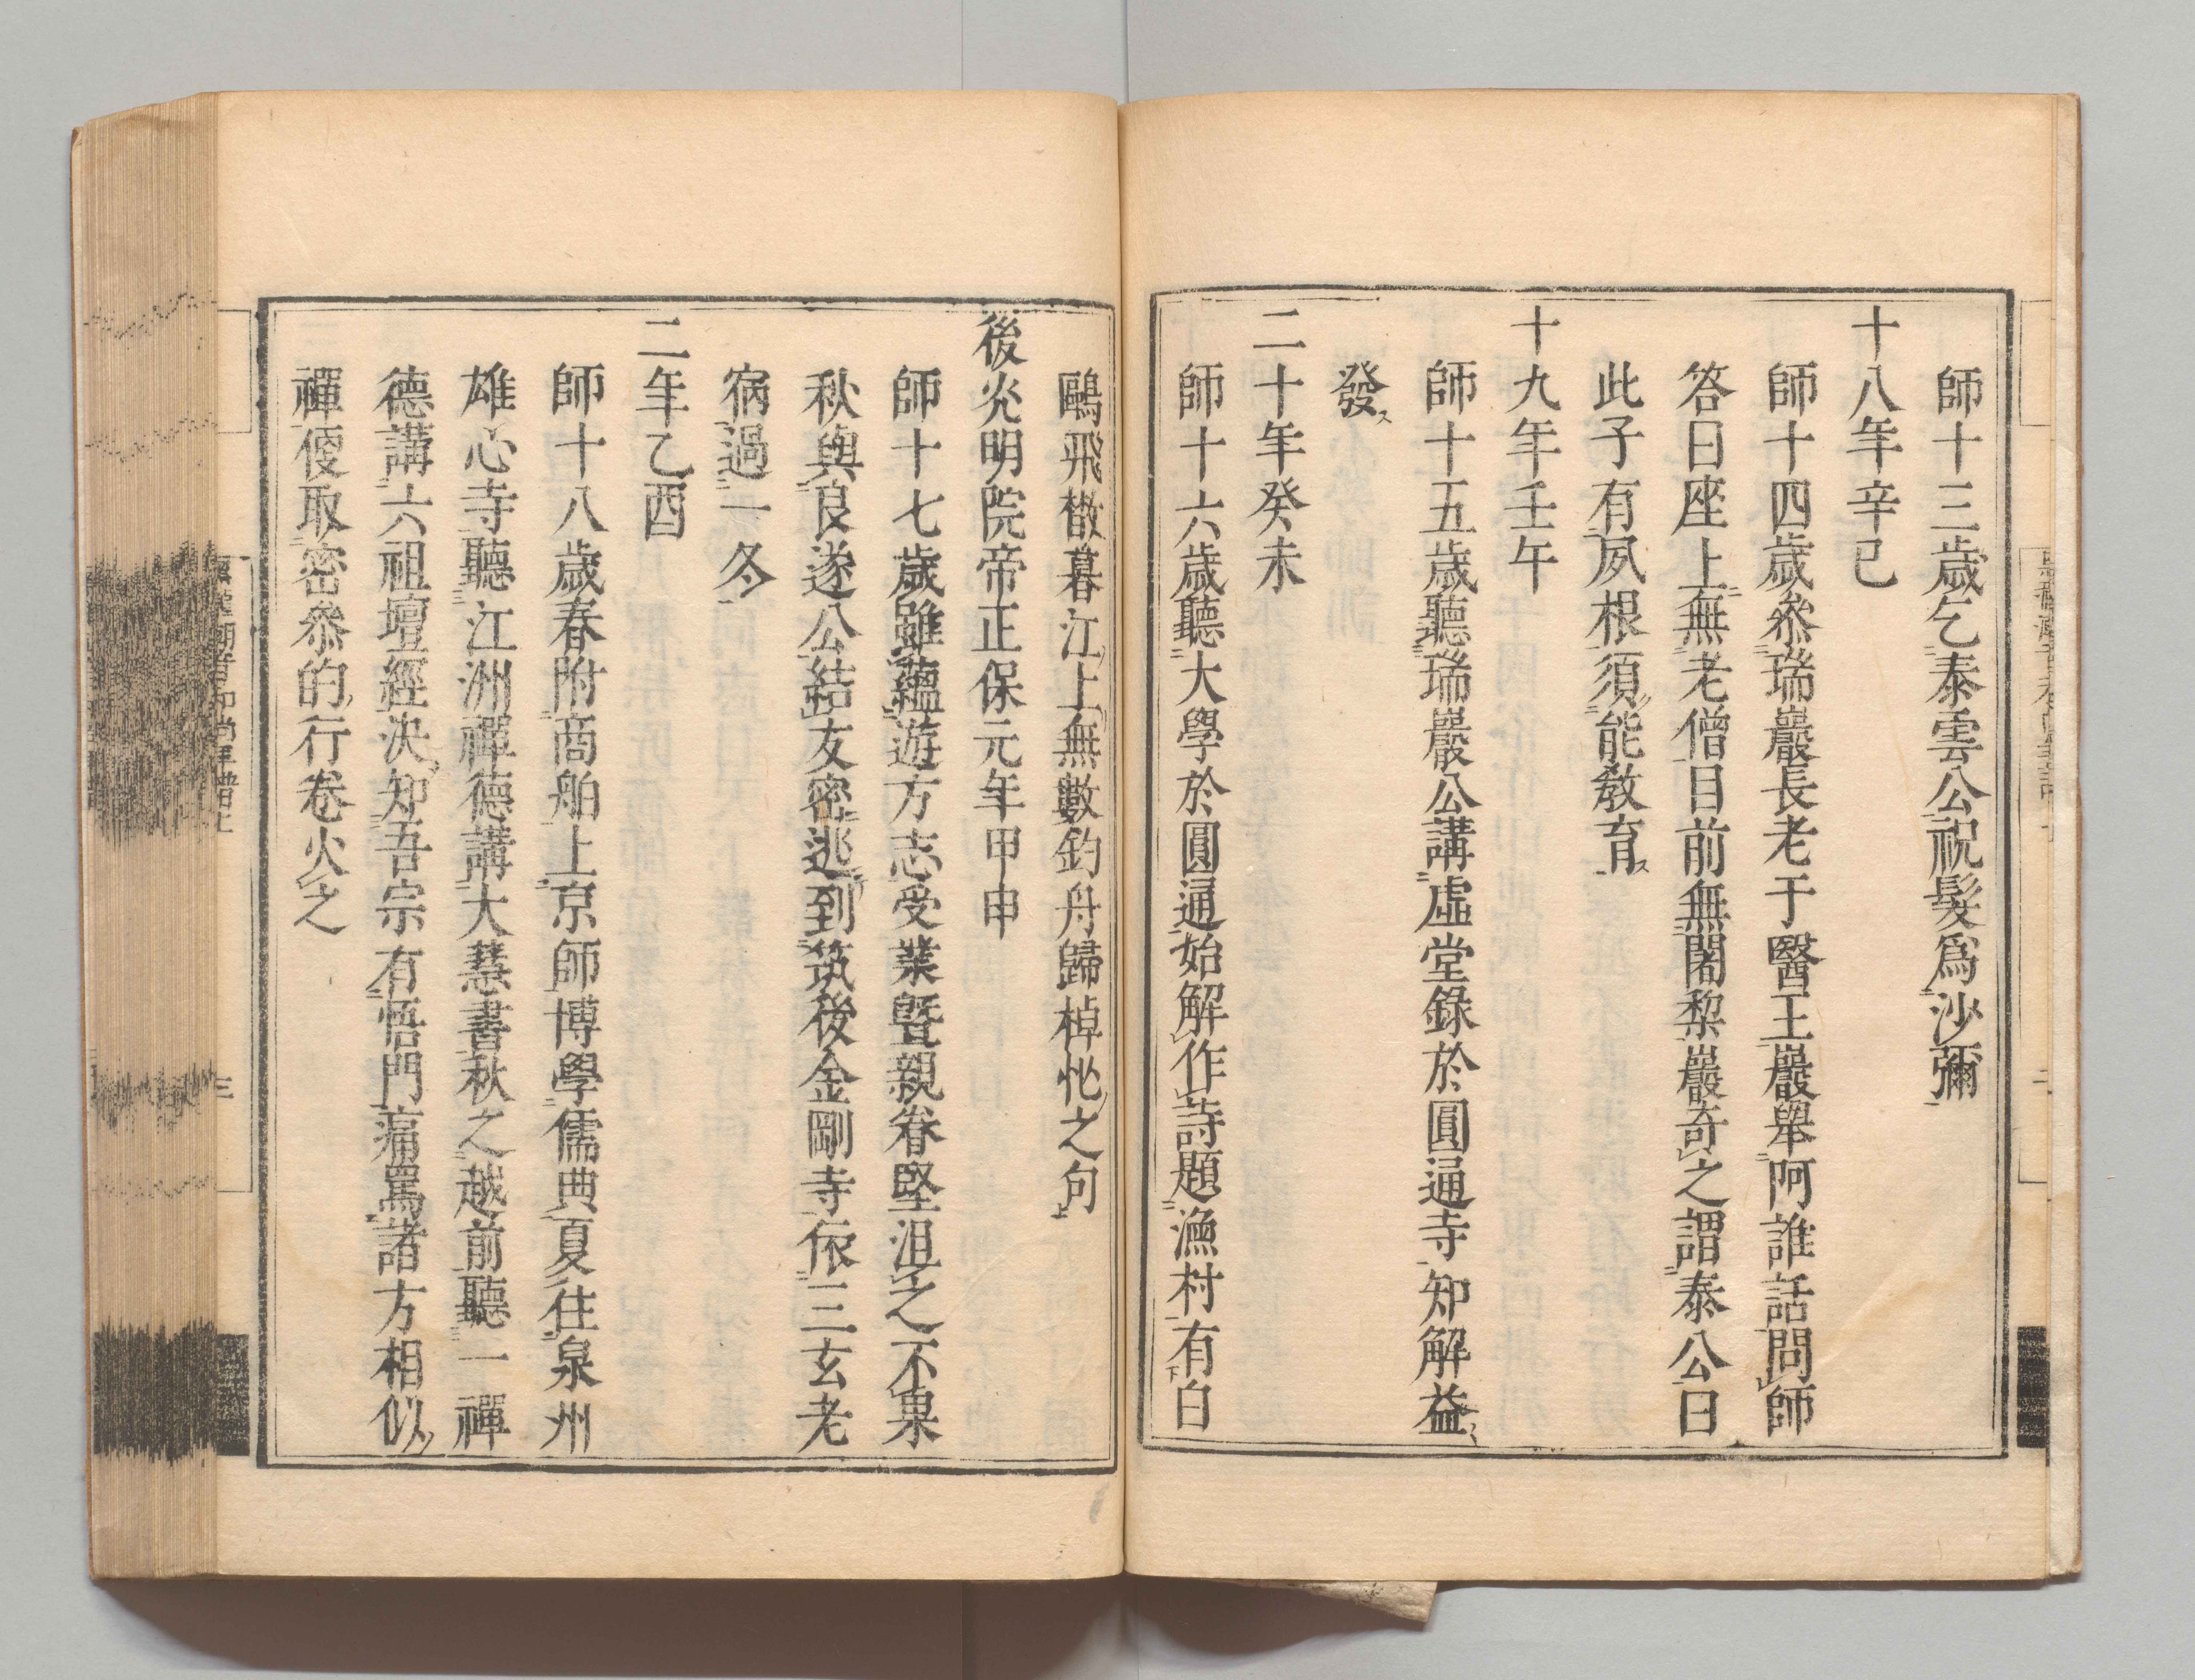 師十三歳乞泰雲公祝髮爲沙彌
十八年辛已
師十四歳叅瑞巖長老于醫王巖舉阿誰話問師
答曰座上無老僧目前無闍黎巖奇之謂泰公曰
此子有夙根須能敎育
十九年壬午
師十五歳聽瑞巖公講虛堂錄於圓通寺知解益
發
二十年癸未
師十六歳聽大學於圓通始解作詩題漁村有白
鷗飛檄暮江上無數釣舟歸棹忙之句
後光明院帝正保元年甲申
師十七歳雖蘊遊方志受業曁親眷堅沮之不果
秋與良遂公結友密逃到筑後金剛寺依三玄老
宿過一冬
二年乙酉
師十八歳春附商舶上京師博學儒典夏往泉州
雄心寺聽江洲禪德講大慧書秋之越前聽一禪
德講六祖壇經決知吾宗有悟門痛罵諸方相似
禪便取密叅的行卷火之